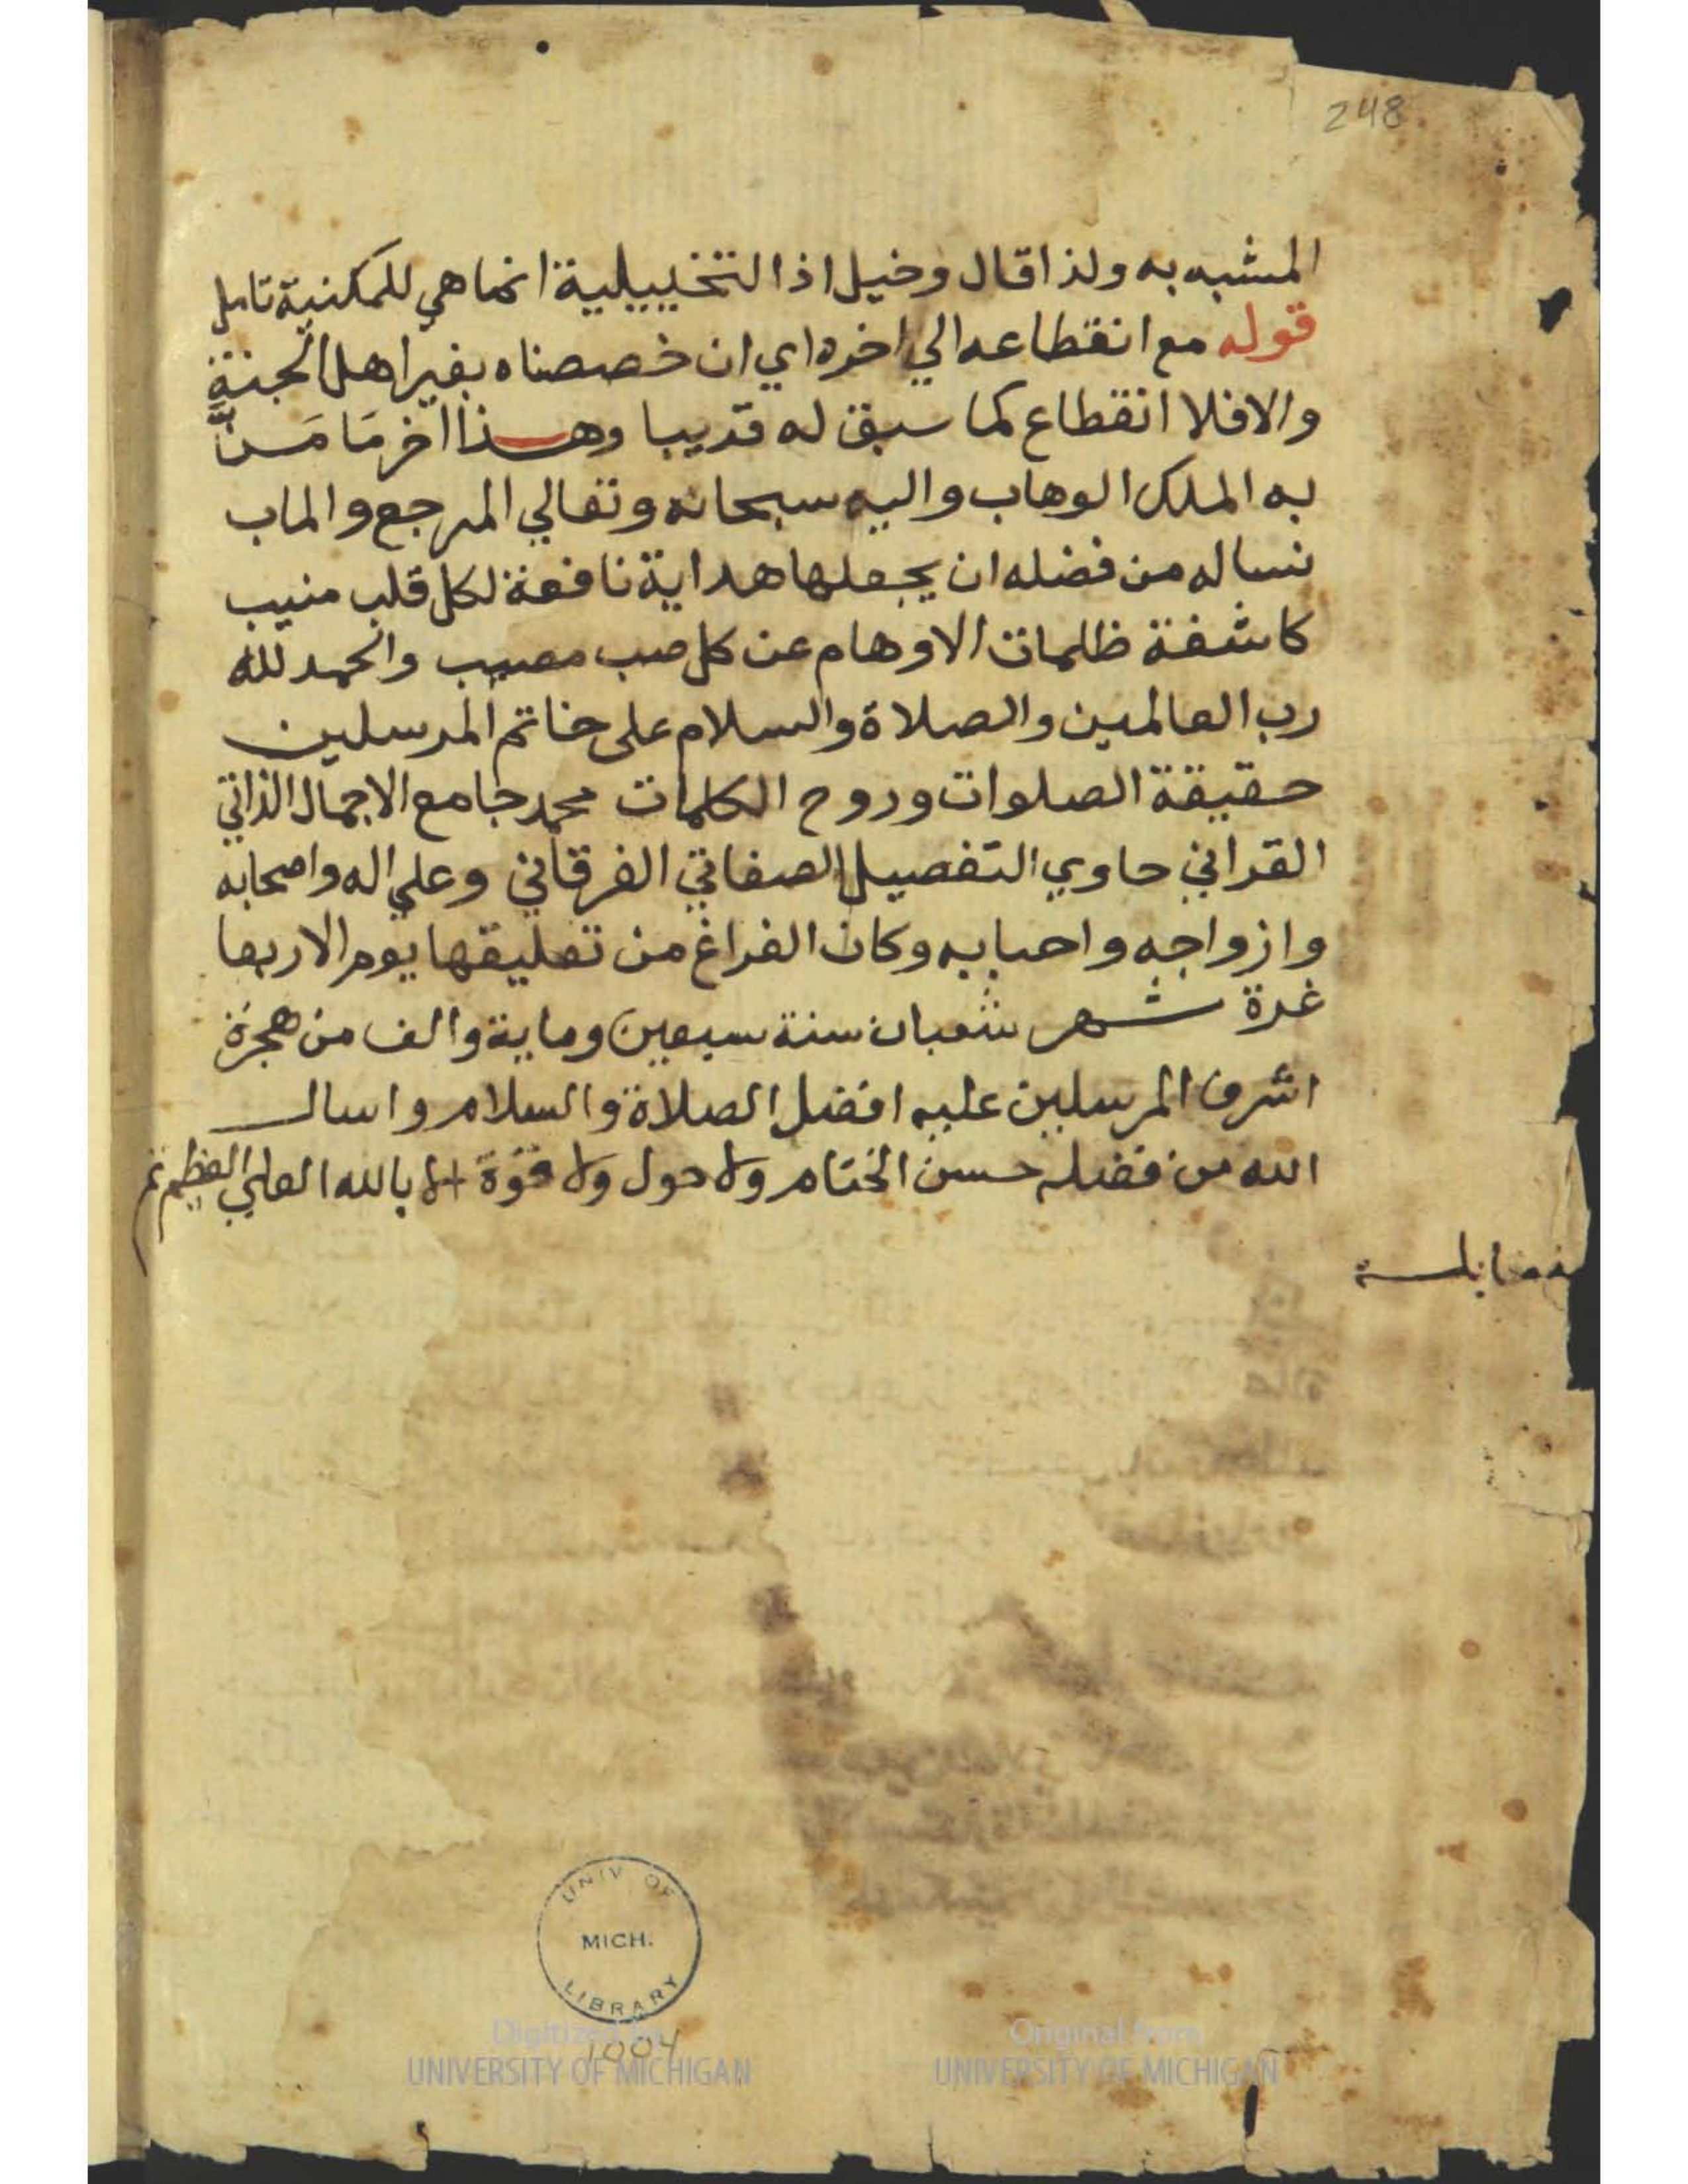 248
المشبه به ولذا قال وخيل اذ التخييلية انما هي للمكنية تامل
قوله مع انقطاعه الي اخره اي ان خصصناه بغير اهل الجنة
والا فلا انقطاع كما سبق له قريبا وهذا اخر مَا مَنَّ
به الملك الوهاب واليه سبحانه وتعالي المرجع والماب
نساله من فضله ان يجعلها هداية نافعة لكل قلب منيب
كاشفة ظلمات الاوهام عن كل صب مصيب والحمد لله
رب العالمين والصلاة والسلام على خاتم المرسلين
حقيقة الصلوات وروح الكلمات محمد جامع الاجمال الذاتي
القراني حاوي التفصيل الصفاتي الفرقاني وعلي اله واصحابه
وازواجه واحبابه وكان الفراغ من تعليقها يوم الاربعا
غرة شهر شعبان سنة سبعين وماية والف من هجرة
اشرف المرسلين عليه افضل الصلاة والسلام واسال
الله من فضله حسن الختام ولا حول ولا قوة الا بالله العلي العظيم تم
مقابلة
UNIV OF
MICH.
LIBRARY
1004
Digitized by
UNIVERSITY OF MICHIGAN
Original from
UNIVERSITY OF MICHIGAN